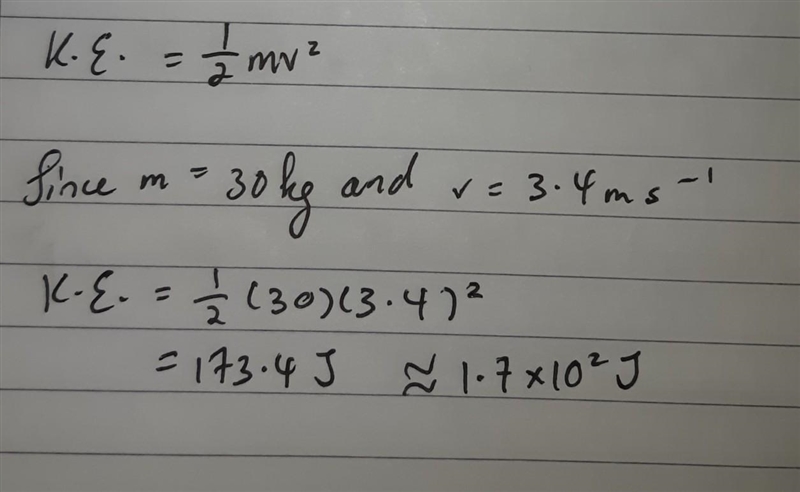 K.E. = 1/2 mv²
Since m = 30 kg and v = 3.4 m s⁻¹
K.E. = 1/2 (30)(3.4)²
= 173.4 J ≈ 1.7 × 10² J